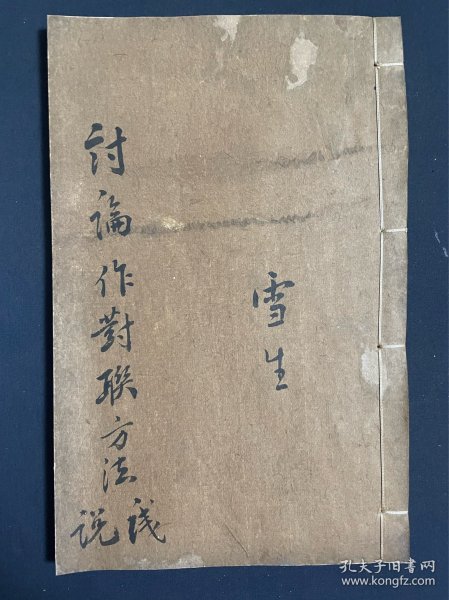 雪生
討論作對聯方法
淺説
孔夫子旧书网
www.kongfz.com